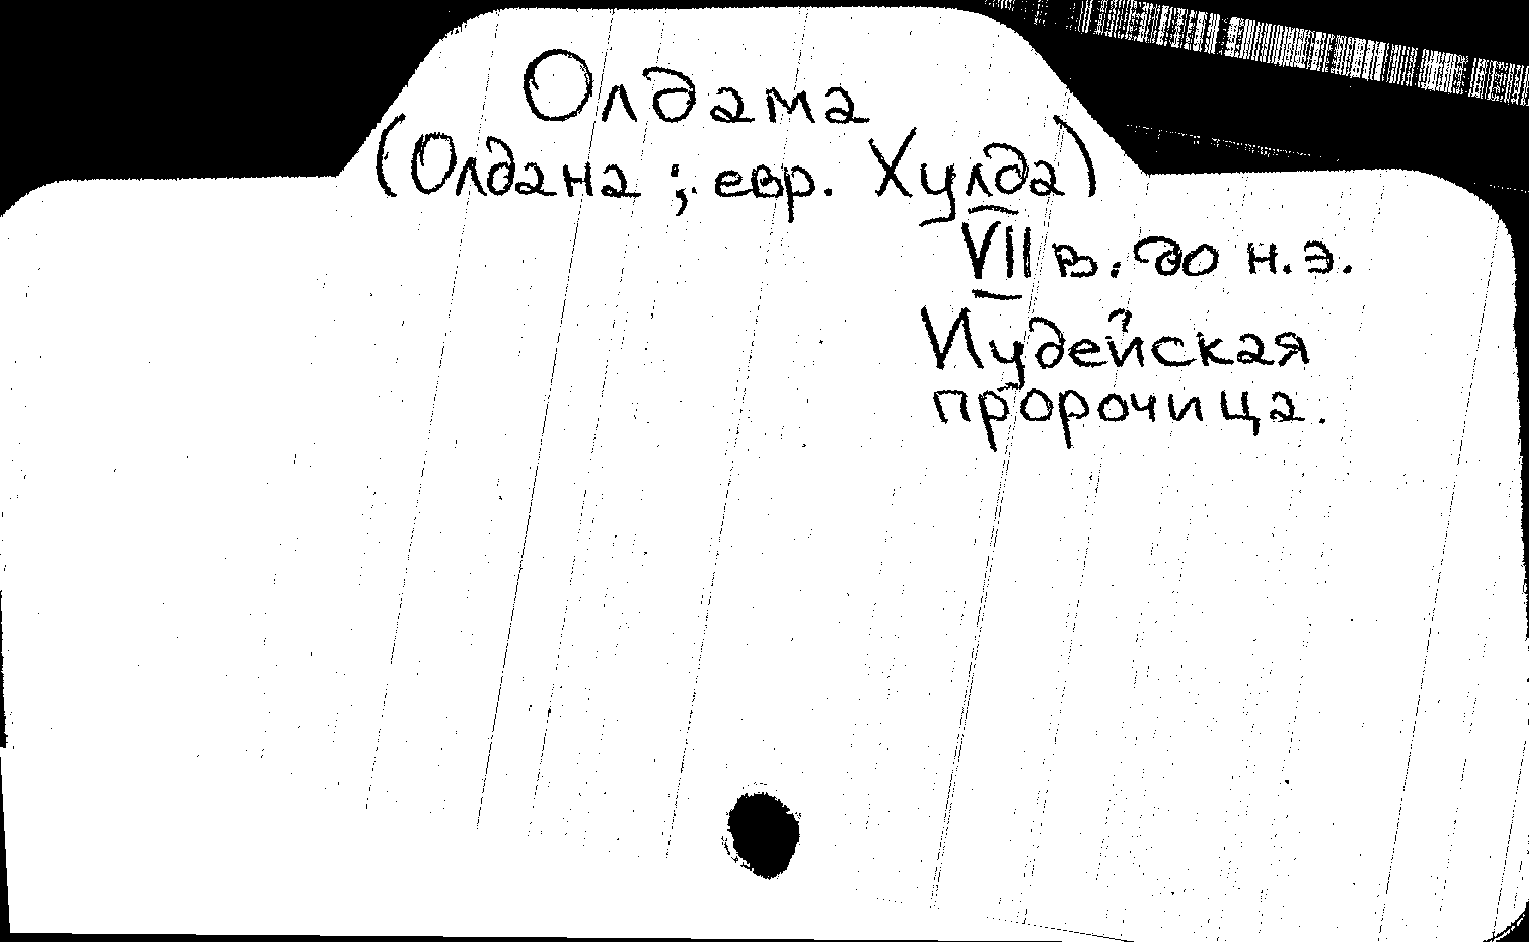 Олдама
(Олдана; евр. Хулда)
VII в. до н.э.
Иудейская
пророчица.